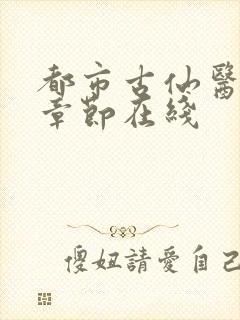 都市古仙醫
章節在綫
傻妞請愛自己